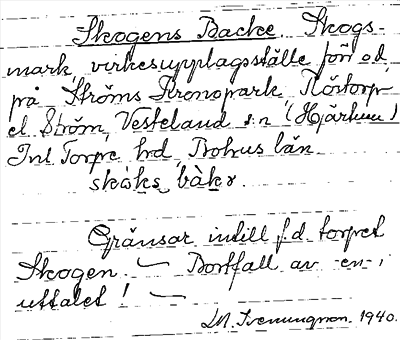 Skogens Backe Skogs-
mark, virkesupplagsställe förr o d,
på Ströms Kronopark, Rörtorp
el. Ström, Vesteland s:n (Hjärtum)
Inl. Torpe hd, Bohus län
skòks bàkə.
Gränsar intill f.d. torpet
Skogen. — Bortfall av -en- i
uttalet! —
1940.